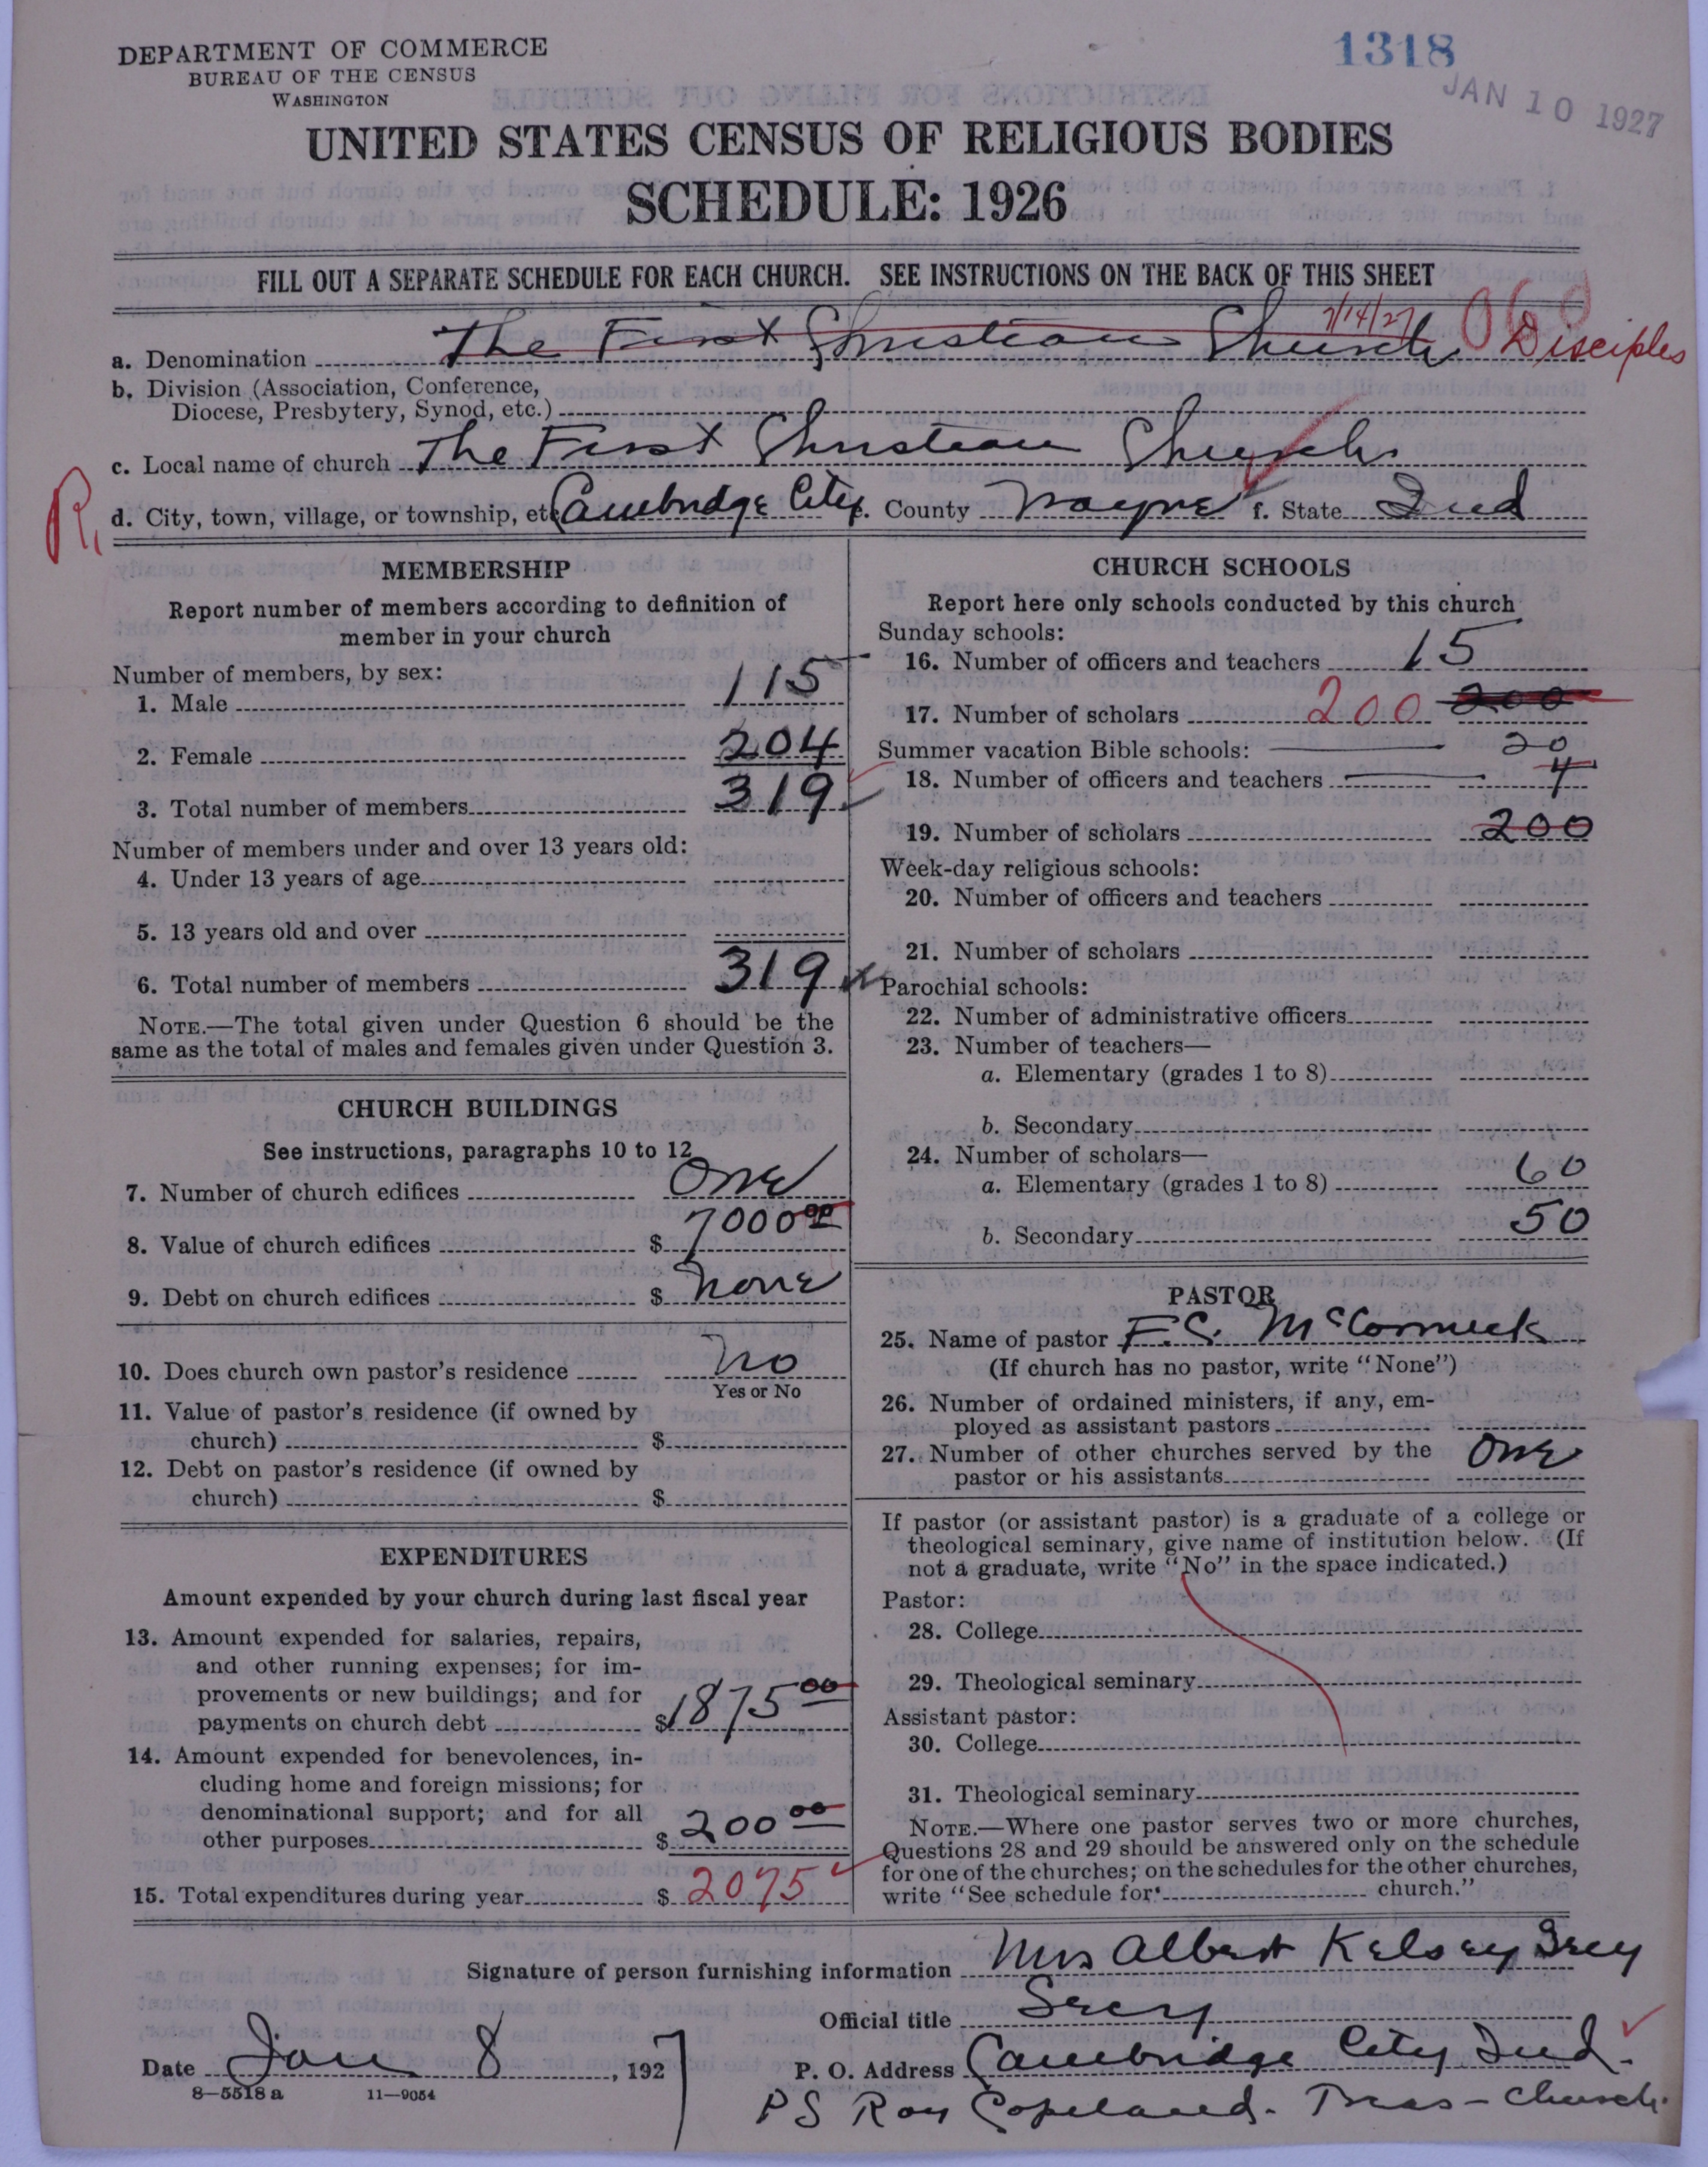 DEPARTMENT OF COMMERCE
BUREAU OF THE CENSUS
WASHINGTON
1318
JAN 10 1927
UNITED STATES CENSUS OF RELIGIOUS BODIES
SCHEDULE: 1926
FILL OUT A SEPARATE SCHEDULE FOR EACH CHURCH. SEE INSTRUCTIONS ON THE BACK OF THIS SHEET
7/14/27
a. Denomination The First Christian Church Disciples
b. Division (Association, Conference,
Diocese, Presbytery, Synod, etc.)
c. Local name of church The First Christian Church
R.
d. City, town, village, or township, etc Cambridge City e. County Wayne f. State Ind
MEMBERSHIP
Report number of members according to definition of
member in your church
Number of members, by sex:
1. Male 115
2. Female 204
3. Total number of members 319
Number of members under and over 13 years old:
4. Under 13 years of age
5. 13 years old and over
6. Total number of members 319
NOTE.—The total given under Question 6 should be the
same as the total of males and females given under Question 3.
CHURCH BUILDINGS
See instructions, paragraphs 10 to 12
7. Number of church edifices One
8. Value of church edifices $ 7000 00
9. Debt on church edifices $ none
10. Does church own pastor's residence No
Yes or No
11. Value of pastor's residence (if owned by
church) $
12. Debt on pastor's residence (if owned by
church) $
EXPENDITURES
Amount expended by your church during last fiscal year
13. Amount expended for salaries, repairs,
and other running expenses; for im-
provements or new buildings; and for
payments on church debt $ 1875 00
14. Amount expended for benevolences, in-
cluding home and foreign missions; for
denominational support; and for all
other purposes $ 200 00
15. Total expenditures during year $ 2075
CHURCH SCHOOLS
Report here only schools conducted by this church
Sunday schools:
16. Number of officers and teachers 15
17. Number of scholars 200 200
Summer vacation Bible schools: 20
18. Number of officers and teachers 4
19. Number of scholars 200
Week-day religious schools:
20. Number of officers and teachers
21. Number of scholars
Parochial schools:
22. Number of administrative officers
23. Number of teachers—
a. Elementary (grades 1 to 8)
b. Secondary
24. Number of scholars—
a. Elementary (grades 1 to 8) 60
b. Secondary 50
PASTOR
25. Name of pastor F.C. McCormick
(If church has no pastor, write "None")
26. Number of ordained ministers, if any, em-
ployed as assistant pastors
27. Number of other churches served by the
pastor or his assistants One
If pastor (or assistant pastor) is a graduate of a college or
theological seminary, give name of institution below. (If
not a graduate, write "No" in the space indicated.)
Pastor:
28. College
29. Theological seminary
Assistant pastor:
30. College
31. Theological seminary
NOTE.—Where one pastor serves two or more churches,
Questions 28 and 29 should be answered only on the schedule
for one of the churches; on the schedules for the other churches,
write "See schedule for church."
Signature of person furnishing information Mrs Albert Kelsey Secy
Official title Secy
Date Jan 8, 1927
P. O. Address Cambridge City Ind.
8—5518 a 11—9054
PS Roy Copeland. Treas - Church.